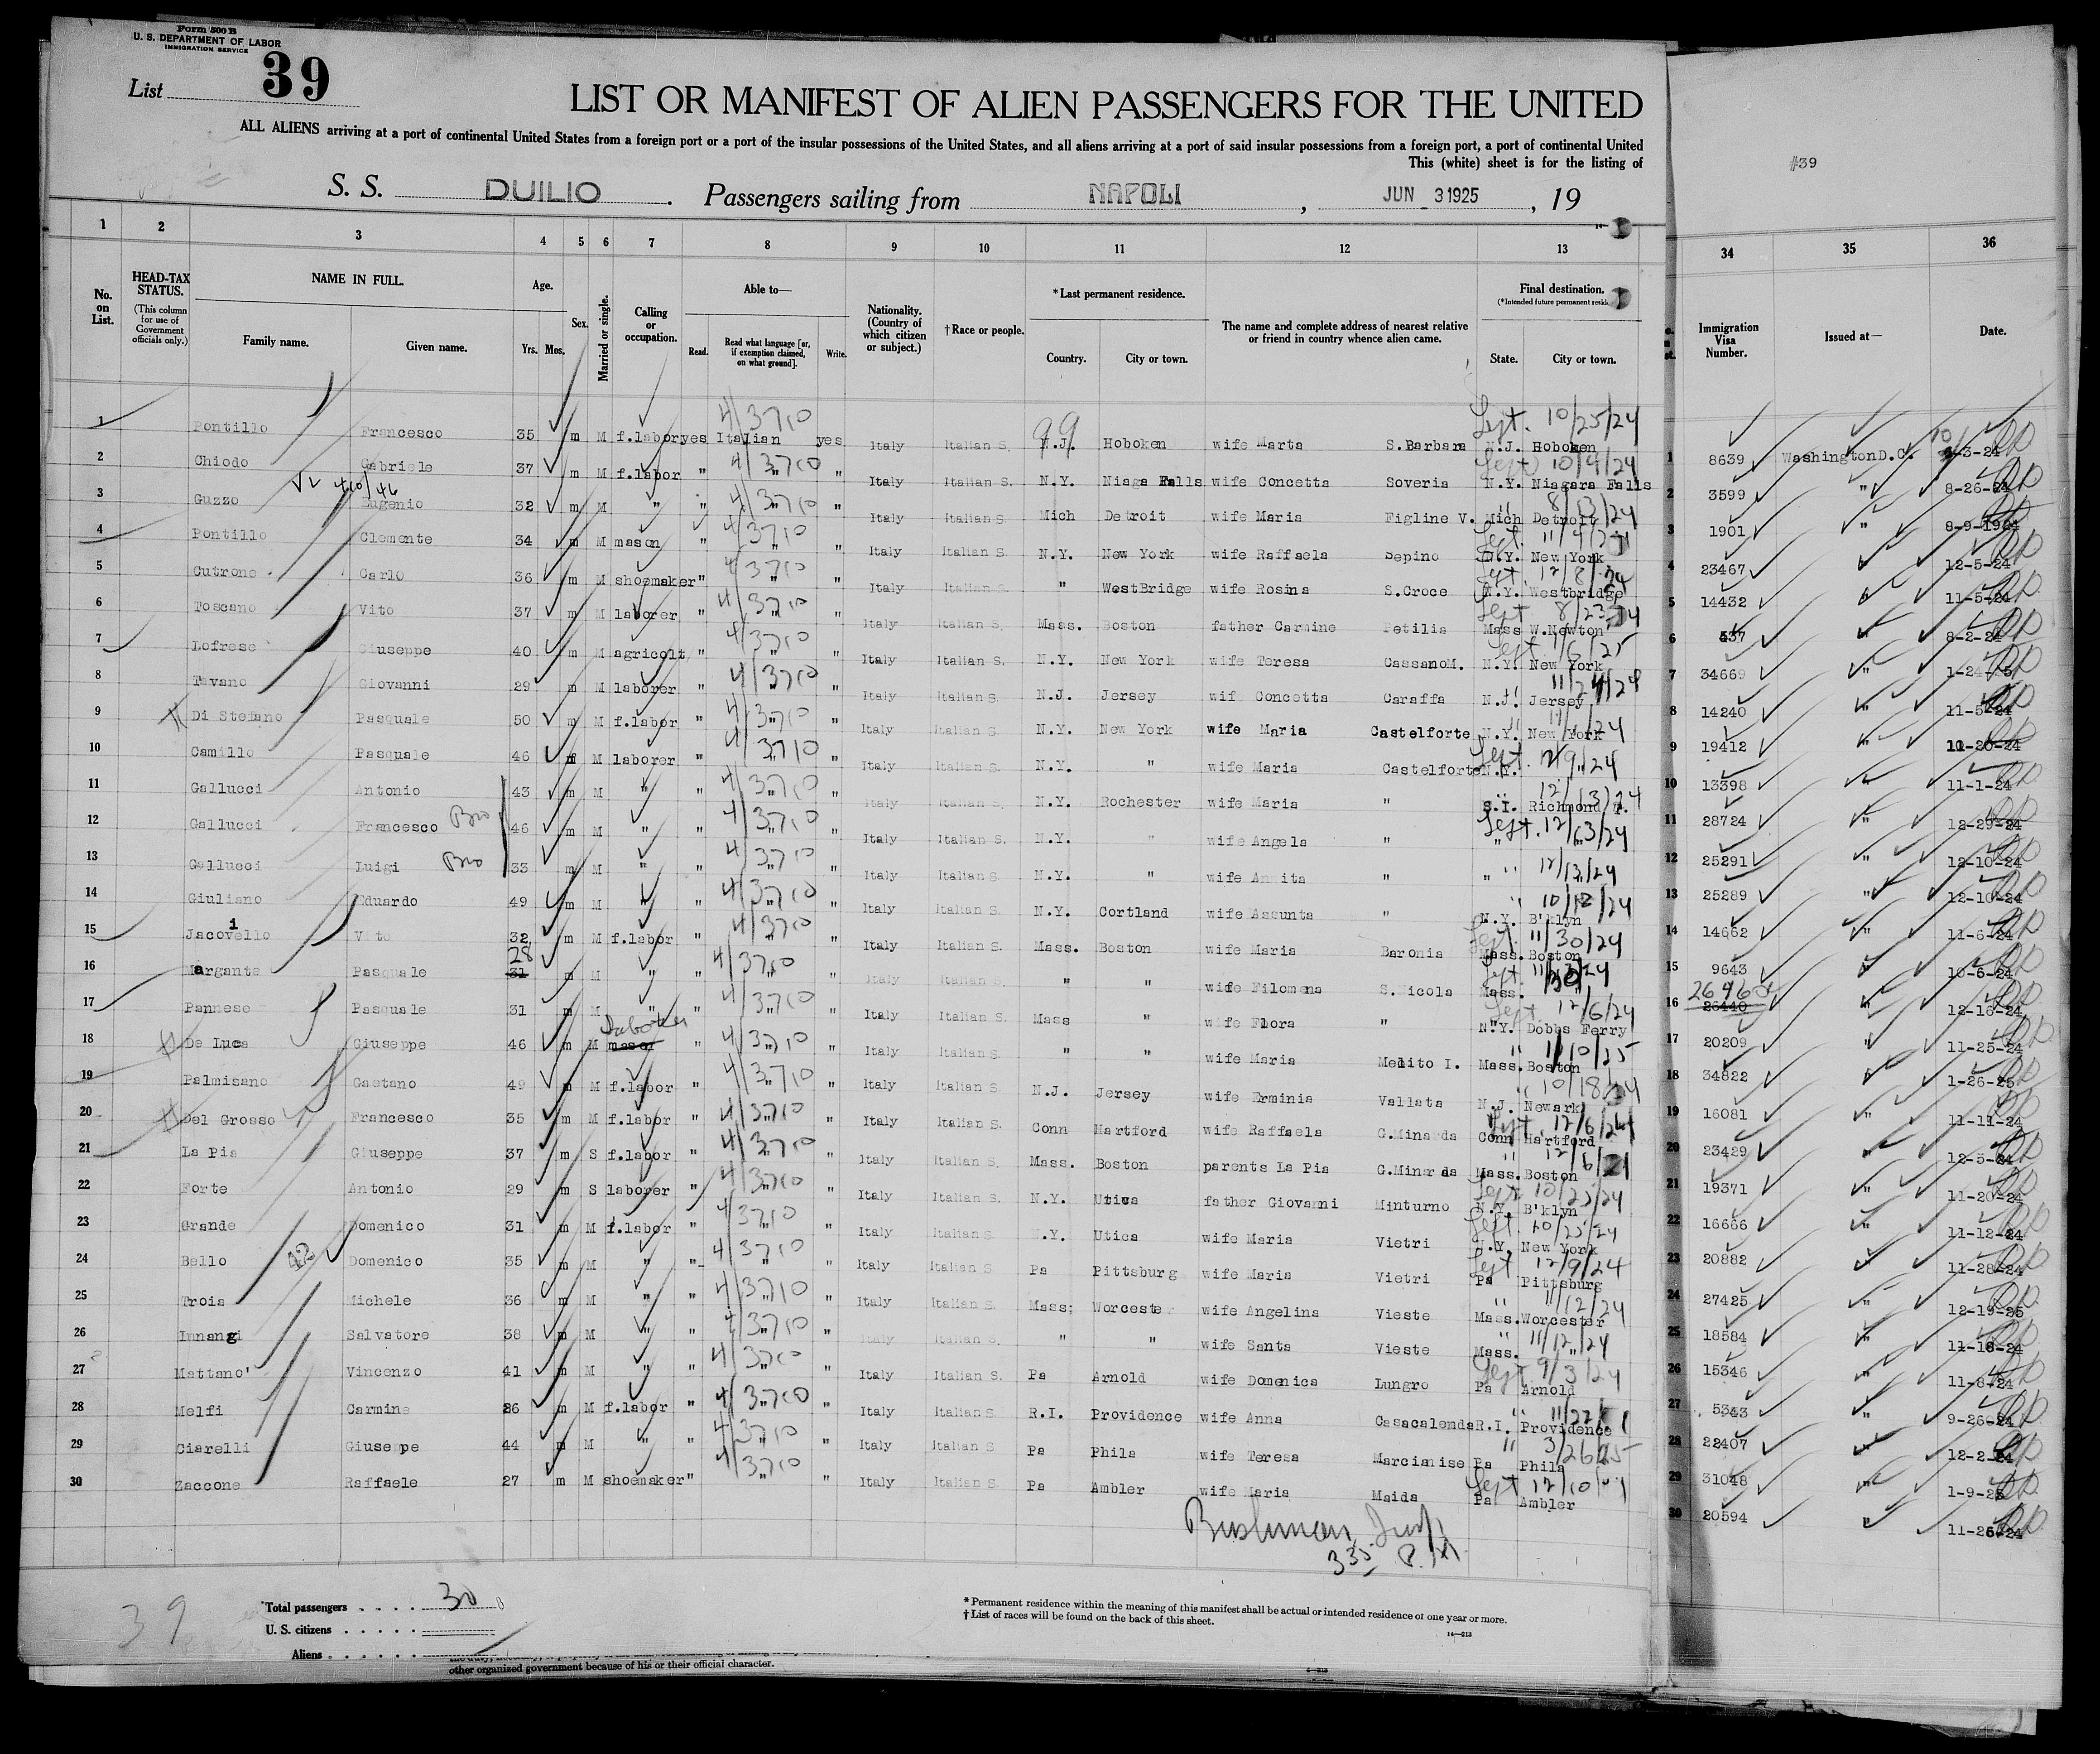 Form 500 B
U. S. DEPARTMENT OF LABOR
IMMIGRATION SERVICE
List 39
LIST OR MANIFEST OF ALIEN PASSENGERS FOR THE UNITED
ALL ALIENS arriving at a port of continental United States from a foreign port or a port of the insular possessions of the United States, and all aliens arriving at a port of said insular possessions from a foreign port, a port of continental United
This (white) sheet is for the listing of
#39
S. S. DUILIO. Passengers sailing from NAPOLI, JUN 3 1925, 19
1 2 3 4 5 6 7 8 9 10 11 12 13 34 35 36
No. on List.
HEAD-TAX STATUS.
(This column for use of Government officials only.)
NAME IN FULL.
Family name. Given name.
Age.
Yrs. Mos.
Sex.
Married or single.
Calling or occupation.
Able to—
Read. Read what language [or, if exemption claimed, on what ground]. Write.
Nationality. (Country of which citizen or subject.)
†Race or people.
*Last permanent residence.
Country. City or town.
The name and complete address of nearest relative or friend in country whence alien came.
Final destination.
(*Intended future permanent
State. City or town.
Immigration Visa Number.
Issued at—
Date.
1 Pontillo Francesco 35 m M f.labor yes Italian yes Italy Italian S. N.J. Hoboken wife Marta S.Barbara N.J. Hoboken 10/25/24 1 8639 Washington D.C.
2 Chiodo Gabriele 37 m M f.labor " " " Italy Italian S. N.Y. Niaga Falls wife Concetta Soveria N.Y. Niagara Falls 10/4/24 2 3599 " 8-26-24
3 Guzzo Eugenio 32 m M " " " " Italy Italian S. Mich Detroit wife Maria Figline V. Mich Detroit 8/13/24 3 1901 " 8-9-1924
4 Pontillo Clemente 34 m M mason " " " Italy Italian S. N.Y. New York wife Raffaela Sepino N.Y. New York 4 23467 " 12-5-24
5 Cutrone Carlo 36 m M shoemaker " " " Italy Italian S. " WestBridge wife Rosina S.Croce N.Y. Westbridge 12/8/24 5 14432 " 11-5-24
6 Toscano Vito 37 m M laborer " " " Italy Italian S. Mass. Boston father Carmine Petilia Mass W.Newton 8/23/24 6 537 " 8-2-24
7 Lofrese Giuseppe 40 m M agricolt " " " Italy Italian S. N.Y. New York wife Teresa CassanoM. N.Y. New York 7 34669 " 1-24-25
8 Tavano Giovanni 29 m M laborer " " " Italy Italian S. N.J. Jersey wife Concetta Caraffa N.J. Jersey 11/24/24 8 14240 " 11-5-24
9 Di Stefano Pasquale 50 m M f.labor " " " Italy Italian S. N.Y. New York wife Maria Castelforte N.Y. New York 9 19412 " 11-20-24
10 Camillo Pasquale 46 m M laborer " " " Italy Italian S. N.Y. " wife Maria Castelforte N.Y. " 10 13398 " 11-1-24
11 Gallucci Antonio 43 m M " " " " Italy Italian S. N.Y. Rochester wife Maria " S.I. Richmond 12/13/24 11 28724 " 12-29-24
12 Gallucci Francesco Bro 46 m M " " " " Italy Italian S. N.Y. " wife Angela " " " 12/13/24 12 25291 " 12-10-24
13 Gallucci Luigi Bro 33 m M " " " " Italy Italian S. N.Y. " wife Annita " " " 12/13/24 13 25289 " 12-10-24
14 Giuliano Eduardo 49 m M " " " " Italy Italian S. N.Y. Cortland wife Assunta " N.Y. B'klyn 10/12/24 14 14662 " 11-6-24
15 Jacoviello Vito 32 m M f.labor " " " Italy Italian S. Mass. Boston wife Maria Baronia Mass. Boston 11/30/24 15 9643 " 10-6-24
16 Margante Pasquale 28 31 m M " " " " Italy Italian S. " " wife Filomena S.Nicola Mass. " 16 26440 " 12-16-24
17 Pannese Pasquale 31 m M " " " " Italy Italian S. Mass " wife Flora " N.Y. Dobbs Ferry 12/6/24 17 20209 " 11-25-24
18 De Luca Giuseppe 46 m M laborer mason " " " Italy Italian S. " " wife Maria Melito I. Mass. Boston 18 34822 " 1-26-25
19 Palmisano Gaetano 49 m M f.labor " " " Italy Italian S. N.J. Jersey wife Erminia Vallata N.J. Newark 10/18/24 19 16081 " 11-11-24
20 Del Grosso Francesco 35 m M f.labor " " " Italy Italian S. Conn Hartford wife Raffaela G.Minarda Conn Hartford 12/6/24 20 23429 " 12-5-24
21 La Pia Giuseppe 37 m S f.labor " " " Italy Italian S. Mass. Boston parents La Pia G.Minarda Mass. Boston 21 19371 " 11-20-24
22 Forte Antonio 29 m S laborer " " " Italy Italian S. N.Y. Utica father Giovanni Minturno N.Y. B'klyn 22 16666 " 11-12-24
23 Grande Domenico 31 m M f.labor " " " Italy Italian S. N.Y. Utica wife Maria Vietri N.Y. New York 23 20882 " 11-28-24
24 Bello Domenico 35 m M " " " " Italy Italian S Pa Pittsburg wife Maria Vietri Pa Pittsburg 12/9/24 24 27425 " 12-19-25
25 Trois Michele 36 m M " " " " Italy Italian S. Mass; Worceste wife Angelina Vieste Mass. Worcester 11/12/24 25 18584 " 11-18-24
26 Innangi Salvatore 38 m M " " " " Italy Italian S. " " wife Santa Vieste Mass. " 11/12/24 26 15346 " 11-8-24
27 Mattano' Vincenzo 41 m M " " " " Italy Italian S. Pa Arnold wife Domenica Lungro Pa Arnold 9/3/24 27 5343 " 9-26-24
28 Melfi Carmine 26 m M f.labor " " " Italy Italian S. R.I. Providence wife Anna Casacalenda R.I. Providence 28 22407 " 12-2-24
29 Ciarelli Giuseppe 44 m M " " " " Italy Italian S Pa Phila wife Teresa Marcianise Pa Phila 3/26/25 29 31048 " 1-9-25
30 Zaccone Raffaele 27 m M shoemaker " " " Italy Italian S. Pa Ambler wife Maria Maida Pa Ambler 30 20594 " 11-26-24
Bushman
335 P.M.
39
Total passengers . . . . 30
U. S. citizens . . . . .
Aliens . . . . . .
* Permanent residence within the meaning of this manifest shall be actual or intended residence of one year or more.
† List of races will be found on the back of this sheet.
14—213
other organized government because of his or their official character.